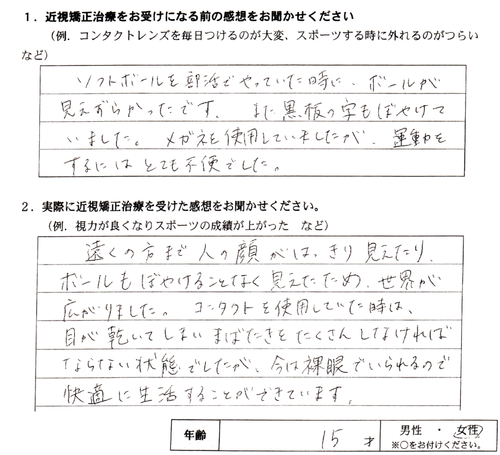 １．近視矯正治療をお受けになる前の感想をお聞かせください
（例．コンタクトレンズを毎日つけるのが大変、スポーツする時に外れるのがつらい
など）
ソフトボールを部活でやっていた時に、ボールが
見えずらかったです。また黒板の字もぼやけて
いました。メガネを使用していましたが、運動を
するにはとても不便でした。
２．実際に近視矯正治療を受けた感想をお聞かせください。
（例．視力が良くなりスポーツの成績が上がった　など）
遠くの方まで人の顔がはっきり見えたり、
ボールもぼやけることなく見えたため、世界が
広がりました。コンタクトを使用していた時は、
目が乾いてしまいまばたきをたくさんしなければ
ならない状態でしたが、今は裸眼でいられるので
快適に生活することができています。
年齢　15才　男性　・　女性
※○をお付けください。